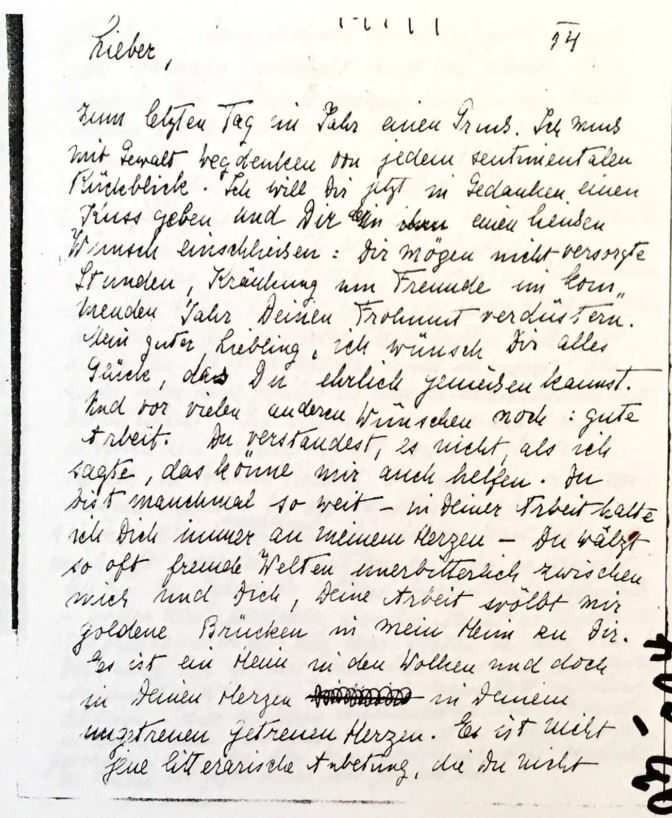 Lieber,
14
zum letzten Tag im Jahr einen Gruss. Ich muss
mit Gewalt wegdenken von jedem sentimentalen
Rückblick. Ich will Dir jetzt in Gedanken einen
Kuss geben und Dir ein einen
Wunsch einschliesen: Dir mögen nicht versorgte
Stunden, Kränkung um Freunde im kom„
menden Jahr Deinen Frohmut verdüstern.
Mein guter Liebling, ich wünsch Dir alles
Glück, das Du ehrlich geniesen kannst.
Und vor vielen anderen Wünschen noch: gute
Arbeit. Du verstandest, es nicht, als ich
sagte, das könne mir auch helfen. Du
bist manchmal so weit – in Deiner Arbeit halte
ich Dich immer an meinem Herzen – Du wälzt
so oft fremde Welten unerbitterlich zwischen
mich und Dich, Deine Arbeit wölbt mir
goldene Brücken in mein Heim zu Dir.
Es ist ein Heim in den Wolken und doch
in Deinen Herzen in Deinem
ungetreuen getreuen Herzen. Es ist nicht
jene litterarische Anbetung, die Du nicht